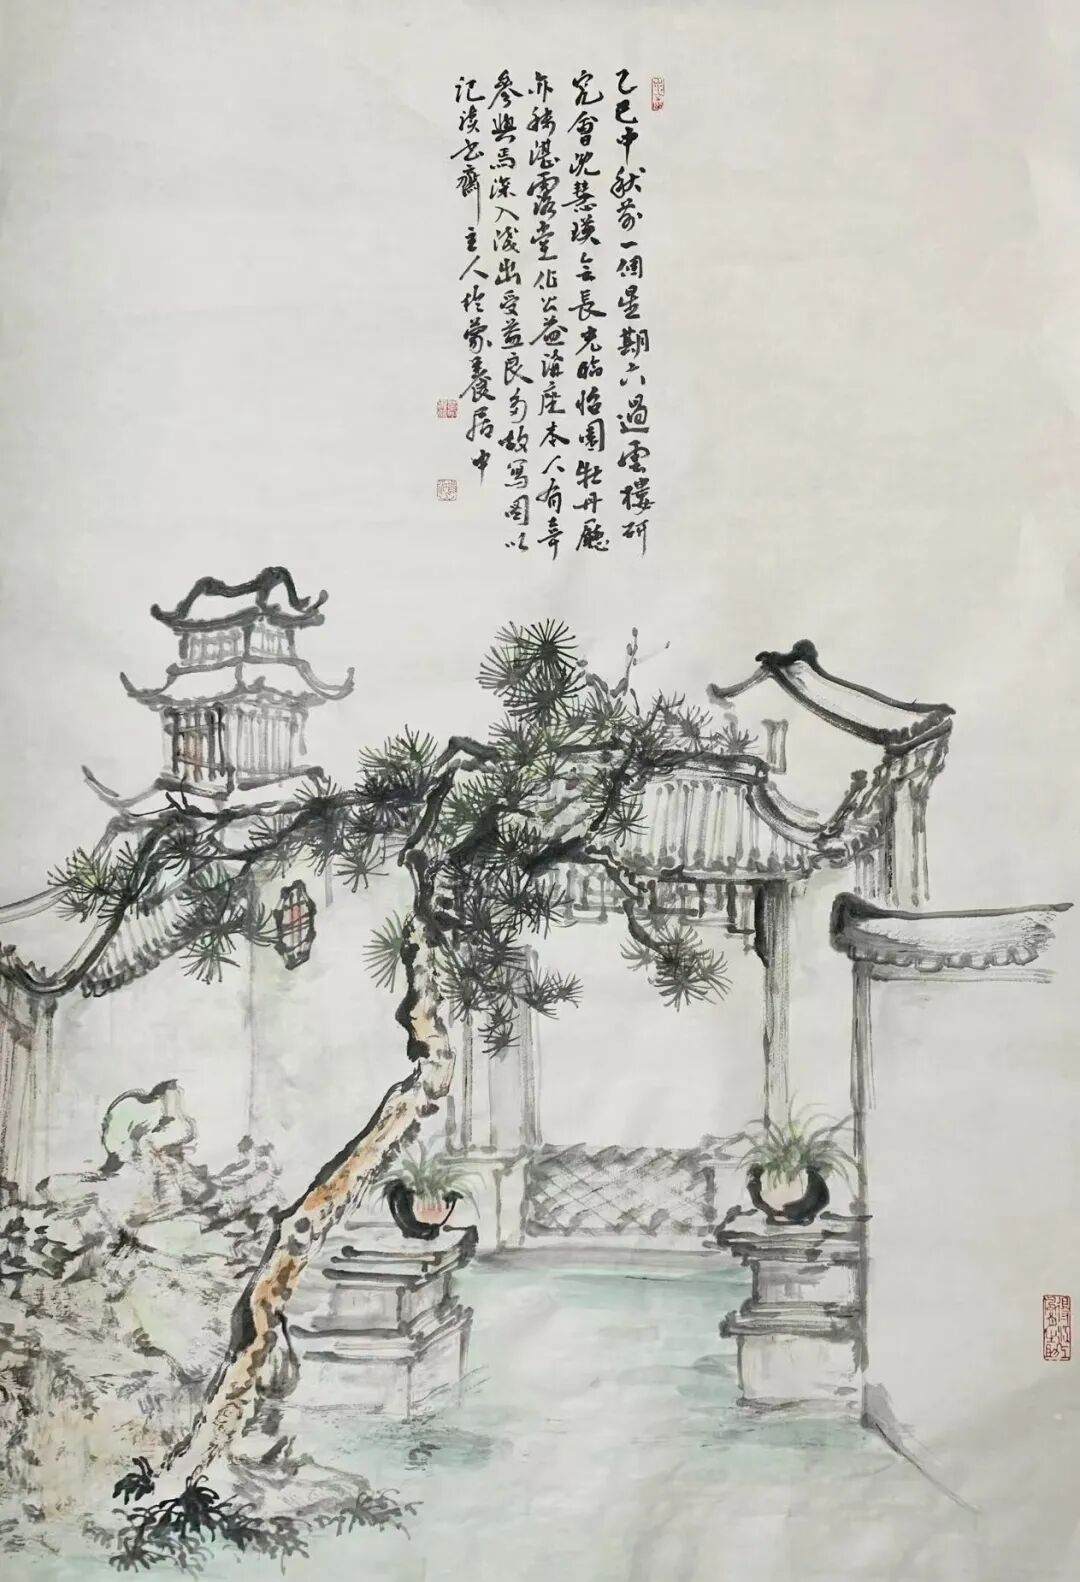 乙巳中秋前一個星期六過雲樓研
究會沈慧瑛會長光臨怡園牡丹廳
亦稱湛露堂作公益講座本人有幸
參與焉深入淺出受益良多故寫圖以
記讀書齋主人於蒙養居中
得江山之助